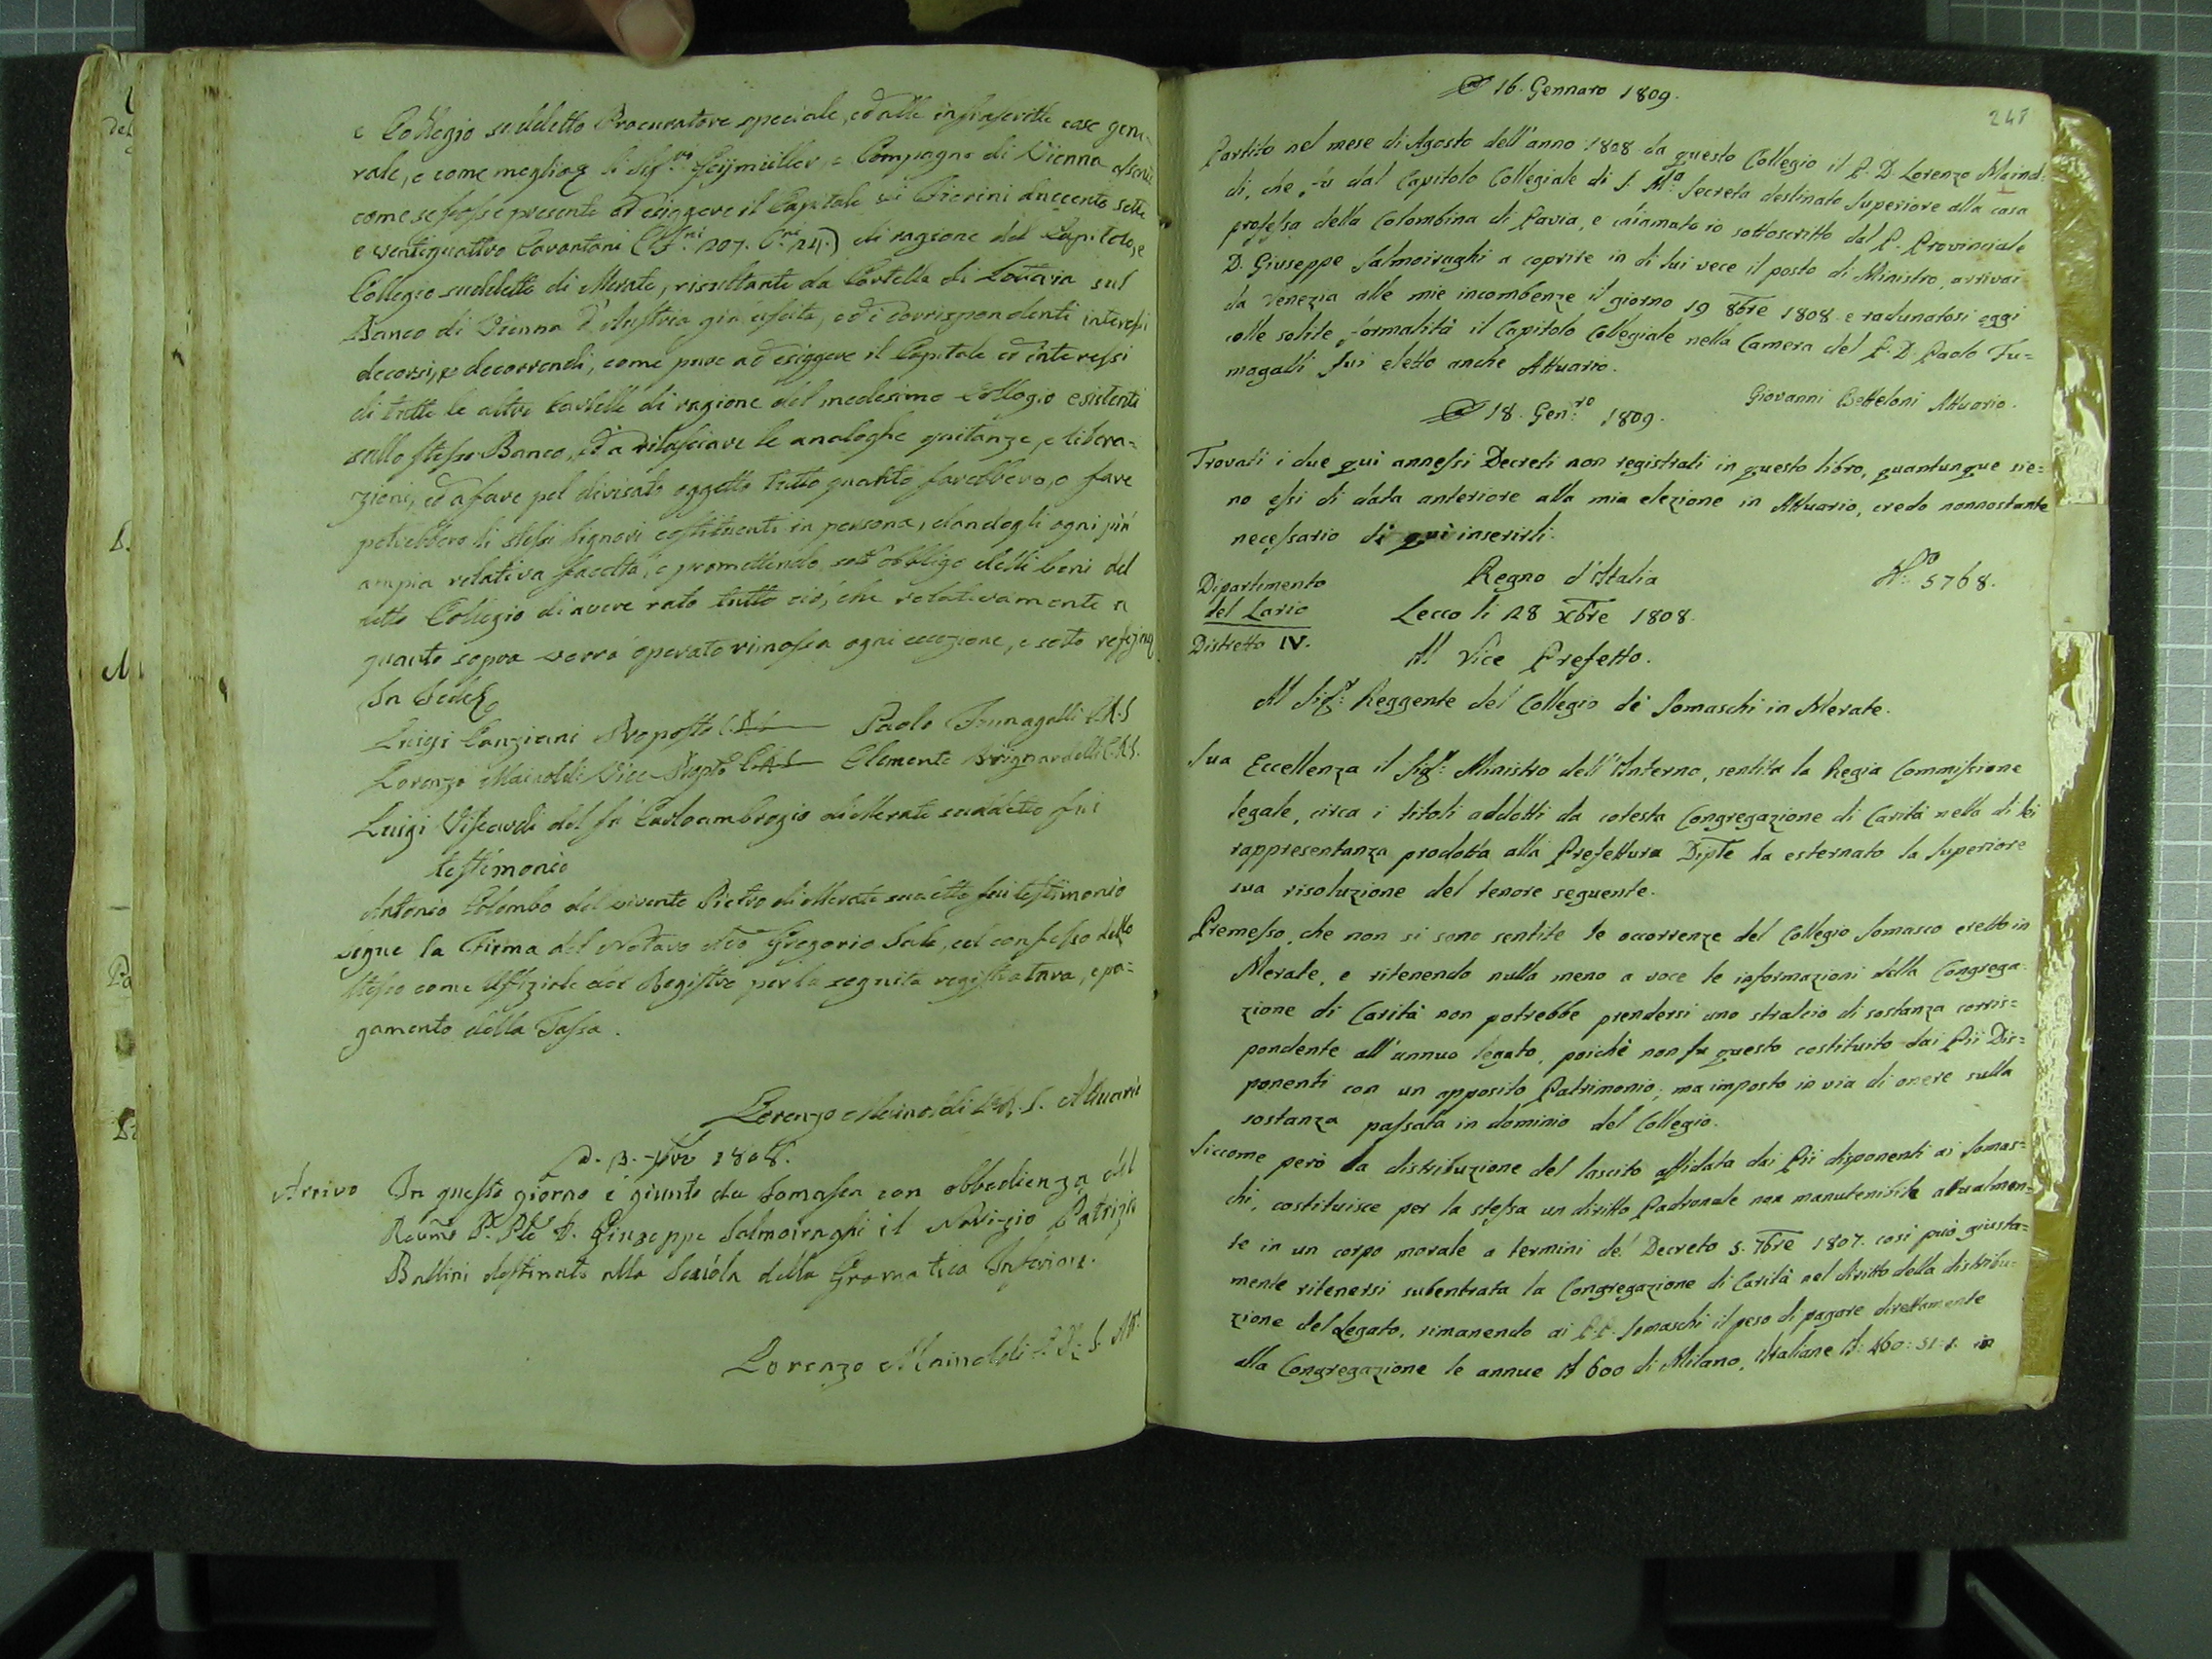 e Collegio suddetto Procuratore speciale, ed alle infrascritte cose gene-
rale, e come meglio li Sig.ri Geijmüller, e Compagno di Vienna assenti
come se fosse presente ad esiggere il Capitale di Fiorini duecento sette
e ventiquattro Carantani (F.ni 207. C.ni 24.) di ragione del Capitolo, e
Collegio suddetto di Merate, risultante da Cartella di Lotteria sul
Banco di Vienna d'Austria già uscita, ed i corrispondenti interessi
decorsi, e decorrendi, come pure ad esiggere il Capitale ed interessi
di tutte le altre Cartelle di ragione del medesimo Collegio esistenti
sullo stesso Banco, ed a rilasciare le analoghe quitanze, e libera=
zioni, ed a fare pel divisato oggetto tutto quanto farebbero, o fare
potrebbero li stessi Signori costituenti in persona, dandogli ogni più
ampia relativa facoltà, e promettendo sott'obbligo delli beni del
detto Collegio di avere rato tutto ciò, che relativamente a
quanto sopra verrà operato rimossa ogni eccezione, e sotto
In Fede
Luigi Canziani Proposto C.R.S. Paolo Fumagalli C.R.S
Lorenzo Mainoldi Vice Prepto C.R.S. Clemente Brignardelli C.R.S.
Luigi Viscardi del fu Carloambrogio di Merate suddetto fui
testimonio
Antonio Colombo del vivente Pietro di Merate suddetto fui testimonio
Segue la Firma del Notaro Gregorio Sala, ed confesso dello
stesso come Uffiziale del Registro per la seguita registratura, e pa=
gamento della Tassa.
Lorenzo Mainoldi C.R.S. Attuario
1808.
Arrivo In questo giorno è giunto da Somasca con obbedienza del
Revmo P. Ple D. Giuseppe Salmoiraghi il Novizio Patrizio
Ballini destinato alla Scuola della Gramatica Inferiore.
Lorenzo Mainoldi C.R.S. Att.
248
16. Gennaro 1809.
Partito nel mese di Agosto dell'anno 1808 da questo Collegio il P. D. Lorenzo Mainol=
di, che fù dal Capitolo Collegiale di S. Ma. Secreta destinato Superiore alla casa
professa della Colombina di Pavia, e chiamato io sottoscritto dal P. Provinciale
D. Giuseppe Salmoiraghi a coprire in di lui vece il posto di Ministro, arrivai
da Venezia alle mie incombenze il giorno 19 8bre 1808. e radunatosi oggi
colle solite formalità il Capitolo Collegiale nella Camera del P. D. Paolo Fu=
magalli fui eletto anche Attuario.
Giovanni Betteloni Attuario.
18. Gen.ro 1809.
Trovati i due qui annessi Decreti non registrati in questo libro, quantunque sie=
no essi di data anteriore alla mia elezione in Attuario, credo nonnostante
necessario di qui inserirli.
Dipartimento Regno d'Italia N.ro 5768.
del Lario Lecco li 28 Xbre 1808.
Distretto IV. Il Vice Prefetto.
Al Sigr. Reggente del Collegio de' Somaschi in Merate.
Sua Eccellenza il Sigr. Ministro dell'Interno, sentita la Regia Commissione
legale, circa i titoli addotti da cotesta Congregazione di Carità nella di lei
rappresentanza prodotta alla Prefettura Diple ha esternato la Superiore
sua risoluzione del tenore seguente.
Premesso, che non si sono sentite le occorrenze del Collegio Somasco eretto in
Merate, e ritenendo nulla meno a voce le informazioni della Congrega-
zione di Carità non potrebbe prendersi uno stralcio di sostanza corris=
pondente all'annuo legato, poichè non fu questo costituito dai Pii Dis=
ponenti con un apposito Patrimonio; ma imposto in via di onere sulla
sostanza passata in dominio del Collegio.
Siccome però la distribuzione del lascito affidata dai Pii disponenti ai Somas=
chi, costituisce per la stessa un diritto Padronale non manutenibile attualmen=
te in un corpo morale a termini del Decreto 5. 7bre 1807. così può giusta=
mente ritenersi subentrata la Congregazione di Carità nel diritto della distribu=
zione del Legato, rimanendo ai P.P. Somaschi il peso di pagare direttamente
alla Congregazione le annue £ 600 di Milano, Italiane £: 460:51:1. in